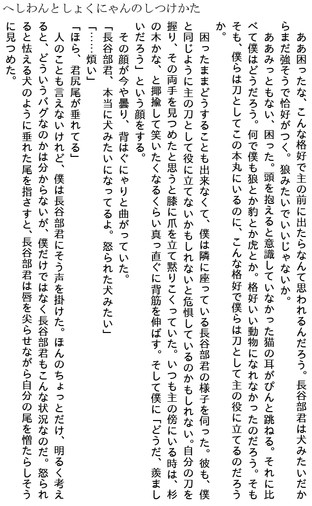 へしわんとしょくにゃんのしつけかた
　ああ困ったな、こんな格好で主の前に出たらなんて思われるんだろう。長谷部君は犬みたいだか
らまだ強そうで恰好がつく。狼みたいでいいじゃないか。
　ああみっともない、困った。頭を抱えると意識していなかった猫の耳がぴんと跳ねる。それに比
べて僕はどうだろう。何で僕も狼とか豹とか虎とか。格好いい動物になれなかったのだろう。そも
そも、僕らは刀としてこの本丸にいるのに、こんな格好で僕らは刀として主の役に立てるのだろう
か。
　困ったままどうすることも出来なくて、僕は隣に座っている長谷部君の様子を伺った。彼も、僕
と同じように主の刀として役に立てないかもしれないと危惧しているのかもしれない。自分の刀を
握り、その両手を見つめたと思うと膝に爪を立て黙りこくっていた。いつも主の傍にいる時は、杉
の木かな、と揶揄して笑いたくなるくらい真っ直ぐに背筋を伸ばす。そして僕に「どうだ、羨まし
いだろう」という顔をする。
　その顔が今や曇り、背はぐにゃりと曲がっていた。
「長谷部君、本当に犬みたいになってるよ。怒られた犬みたい」
「……煩い」
「ほら、君尻尾が垂れてる」
　人のことも言えないけれど、僕は長谷部君にそう声を掛けた。ほんのちょっとだけ、明るく考え
ると、どういうバグなのかは分からないが、僕だけではなく長谷部君もこんな状況なのだ。怒られ
ると怯える犬のように垂れた尾を指さすと、長谷部君は唇を尖らせながら自分の尾を憎たらしそう
に見つめた。